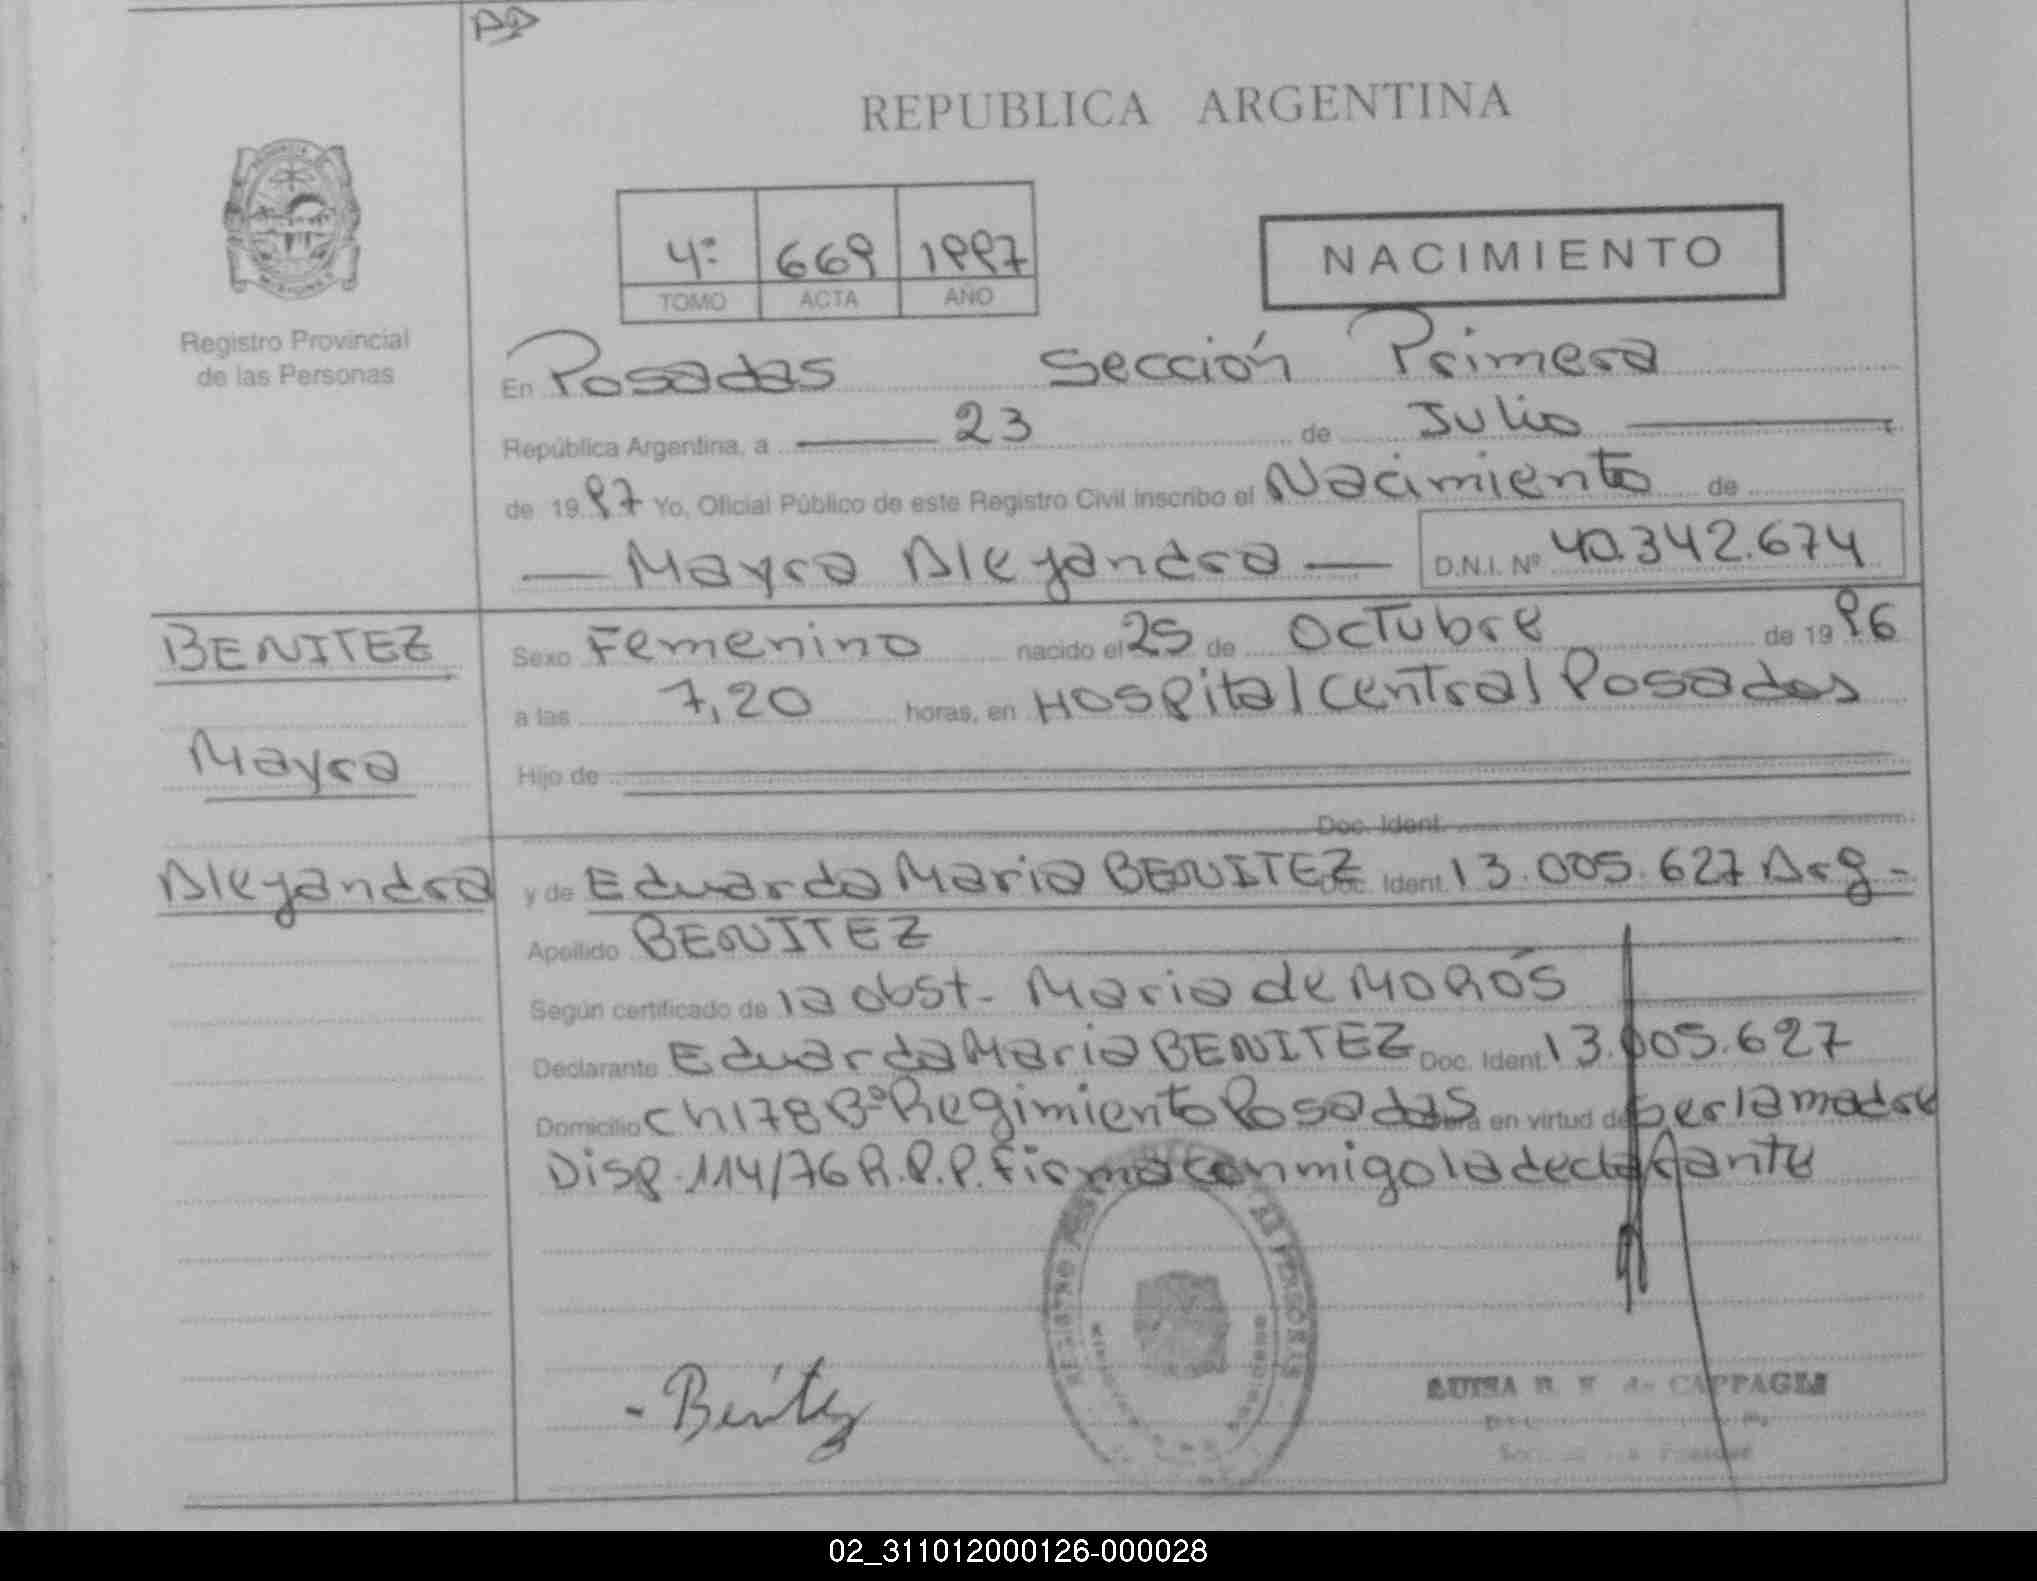 REPUBLICA ARGENTINA
4º 669 1997
TOMO ACTA AÑO
NACIMIENTO
Registro Provincial
de las Personas
En Posadas Sección Primera
República Argentina, a 23 de Julio
de 1997 Yo, Oficial Público de este Registro Civil inscribo el Nacimiento de
Mayra Alejandra D.N.I. Nº 40.342.674
BENITEZ
Mayra
Alejandra
Sexo Femenino nacido el 25 de Octubre de 1996
a las 7,20 horas, en Hospital Central Posadas
Hijo de
Doc. Ident.
y de Eduarda Maria BENITEZ Doc. Ident. 13.005.627 Arg.-
Apellido BENITEZ
Según certificado de la obst- Maria de MOROS
Declarante Eduarda Maria BENITEZ Doc. Ident. 13.005.627
Domicilio Ch 178 Bº Regimiento Posadas en virtud de ser la madre
Disp. 114/76 R.P.P. Firma conmigo la declarante
- Benitez
LUISA de CAPPAGLI
02_311012000126-000028